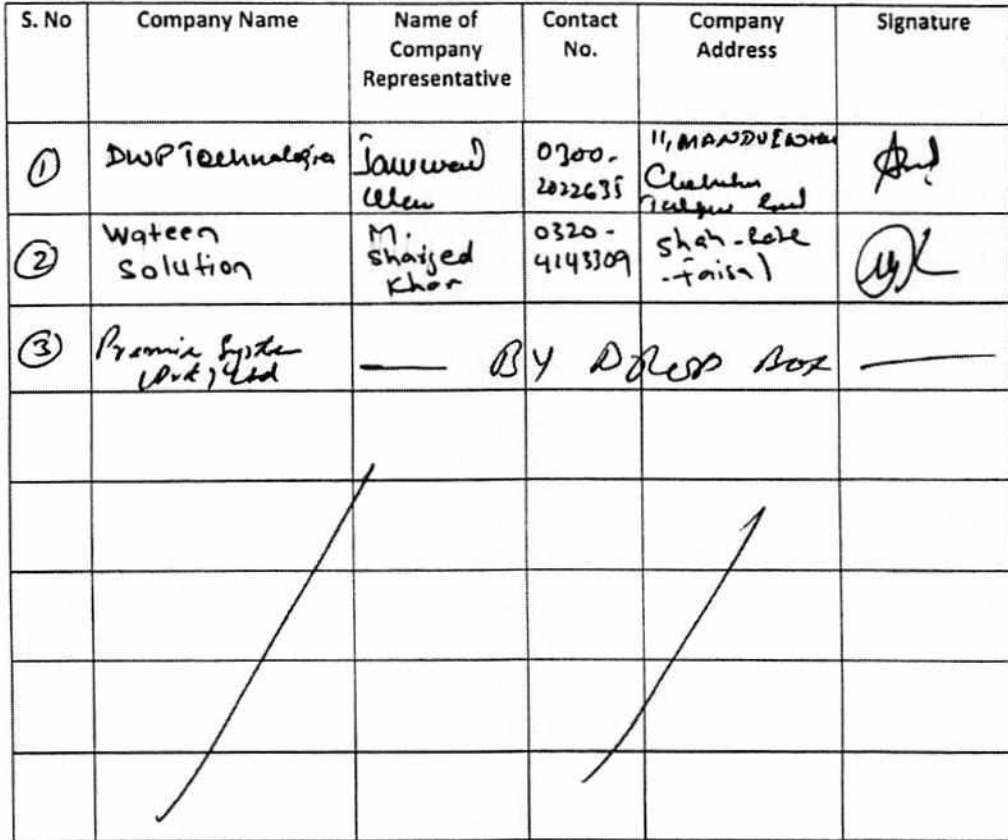 S. No
Company Name
Name of
Company
Representative
Contact
No.
Company
Address
Signature
1
DWP Technologies
Jawwad
0300-
2022635
11, MANDVIWALA
2
Wateen
Solution
M.
Sharjed
Khan
0320-
4143309
Shah-
-Faisal
3
Premier System
(Pvt) Ltd
— BY DROP BOX —